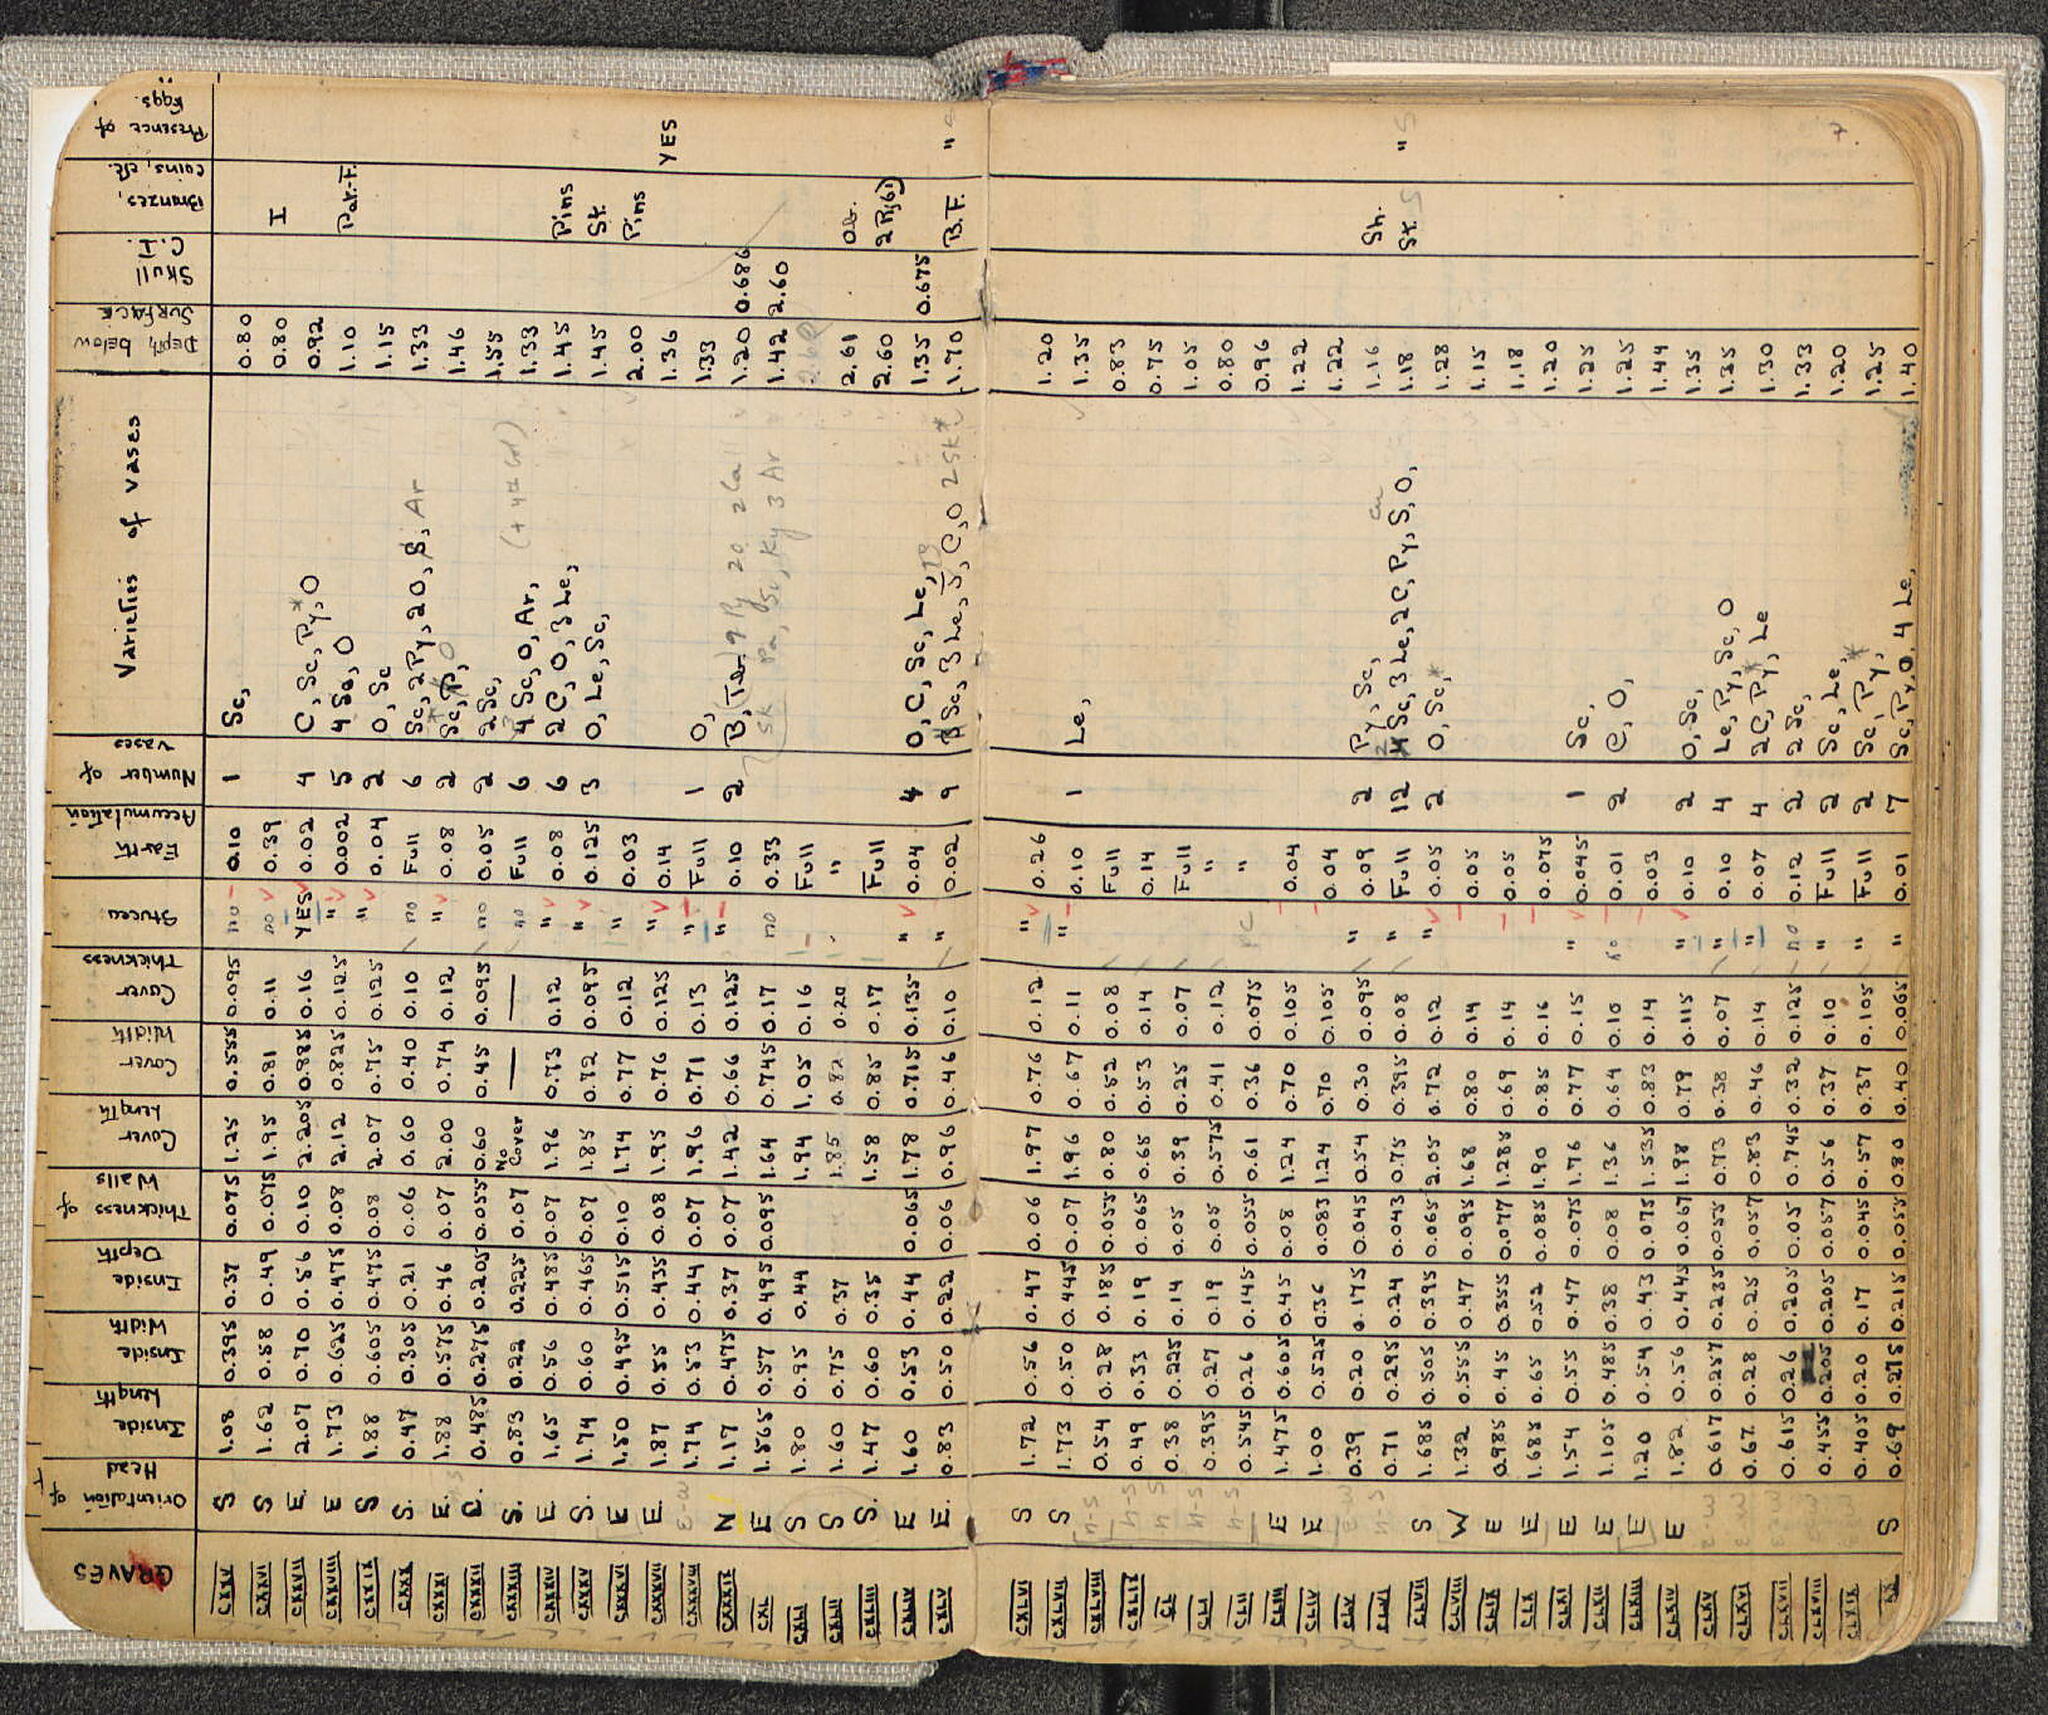 GRAVES | Orientation of Head | Inside Length | Inside Width | Inside Depth | Thickness of Walls | Cover Length | Cover Width | Cover Thickness | Stucco | Earth Accumulation | Number of Vases | Varieties of vases | Depth below SURFACE | Skull C.I. | Bronzes, coins, etc. | Presence of Eggs
CXXV S 1.08 0.395 0.37 0.075 1.25 0.555 0.095 no 0.10 1 Sc, 0.80
CXXVI S 1.62 0.58 0.49 0.075 1.95 0.81 0.11 no 0.39 0.80 I
CXXVII E. 2.07 0.70 0.56 0.10 2.205 0.885 0.16 YES 0.02 4 C, Sc, Py*, O 0.92
CXXVIII E 1.73 0.625 0.475 0.08 2.12 0.825 0.125 " 0.002 5 4 Sc, O 1.10 Par.-F.
CXXIX S 1.88 0.605 0.475 0.08 2.07 0.75 0.125 " 0.04 2 O, Sc 1.15
CXXX S. 0.47 0.305 0.21 0.06 0.60 0.40 0.10 no Full 6 Sc, 2Py, 2O, S, Ar 1.33
CXXXI E. 1.88 0.575 0.46 0.07 2.00 0.74 0.12 " 0.08 2 Sc, O 1.46
CXXXII 0.485 0.275 0.205 0.055 0.60 0.45 0.095 no 0.05 2 2Sc, 1.55
CXXXIII S. 0.83 0.22 0.225 0.07 No Cover — — no Full 6 4 Sc, O, Ar, 1.33
CXXXIV E 1.65 0.56 0.485 0.07 1.96 0.73 0.12 " 0.08 6 2C, O, 3Le, 1.45 Pins
CXXXV S. 1.74 0.60 0.465 0.07 1.85 0.72 0.095 " 0.125 3 O, Le, Sc, 1.45 St.
CXXXVI E 1.50 0.495 0.515 0.10 1.74 0.77 0.12 " 0.03 2.00 Pins
CXXXVII E. 1.87 0.55 0.435 0.08 1.95 0.76 0.125 " 0.14 1.36 YES
CXXXVIII E-W 1.74 0.53 0.44 0.07 1.96 0.71 0.13 " Full 1 O, 1.33
CXXXIX N 1.17 0.475 0.37 0.07 1.42 0.66 0.125 " 0.10 2 B, 9 Py 20 2 Ca 1.20 0.686
CXL E 1.565 0.57 0.495 0.095 1.64 0.745 0.17 no 0.33 Sk Pa, Ky 3 Ar 1.42 2.60
CXLI S 1.80 0.95 0.44 1.94 1.05 0.16 Full 2.60
CXLII S 1.60 0.75 0.37 1.85 0.82 0.20 " 2.61 Ob.
CXLIII S. 1.47 0.60 0.35 1.58 0.85 0.17 Full 2.60
CXLIV E 1.60 0.53 0.44 0.065 1.78 0.715 0.135 " 0.04 4 O, C, Sc, Le, 1.35 0.675
CXLV E. 0.83 0.50 0.22 0.06 0.96 0.46 0.10 " 0.02 9 Sc, 3 Le, S, C, O 2Sk* 1.70 B.F. "
CXLVI S 1.72 0.56 0.47 0.06 1.97 0.76 0.12 " 0.26 1.20
CXLVII S 1.73 0.50 0.445 0.07 1.96 0.67 0.11 " 0.10 1 Le, 1.35
CXLVIII N-S 0.54 0.28 0.185 0.055 0.80 0.52 0.08 Full 0.83
CXLIX N-S 0.49 0.33 0.19 0.065 0.65 0.53 0.14 0.14 0.75
CL N S 0.38 0.225 0.14 0.05 0.39 0.25 0.07 Full 1.05
CLI N-S 0.395 0.27 0.19 0.05 0.575 0.41 0.12 " 0.80
CLII N-S 0.545 0.26 0.145 0.055 0.61 0.36 0.075 " 0.96
CLIII E 1.475 0.605 0.45 0.08 1.24 0.70 0.105 0.04 1.22
CLIV E 1.00 0.525 0.36 0.083 1.24 0.70 0.105 0.04 1.22
CLV E-W 0.39 0.20 0.175 0.045 0.54 0.30 0.095 " 0.09 2 Py, Sc, 1.16 Sh.
CLVI N-S 0.71 0.295 0.24 0.043 0.75 0.395 0.08 " Full 12 4 Sc, 3 Le, 2C, Py, S, O, 1.18 St. "
CLVII S 1.685 0.505 0.395 0.065 2.05 0.72 0.12 " 0.05 2 O, Sc,* 1.28
CLVIII W 1.32 0.555 0.47 0.095 1.68 0.80 0.14 0.05 1.15
CLIX E 0.985 0.45 0.355 0.077 1.285 0.69 0.14 0.05 1.18
CLX E 1.685 0.65 0.52 0.085 1.90 0.85 0.16 0.075 1.20
CLXI E 1.54 0.55 0.47 0.075 1.76 0.77 0.15 " 0.045 1 Sc, 1.25
CLXII E 1.105 0.485 0.38 0.08 1.36 0.64 0.10 no 0.01 2 C, O, 1.25
CLXIII E 1.20 0.54 0.43 0.075 1.535 0.83 0.14 0.03 1.44
CLXIV E 1.82 0.56 0.445 0.067 1.98 0.79 0.115 " 0.10 2 O, Sc, 1.35
CLXV E-W 0.617 0.257 0.235 0.055 0.73 0.38 0.07 " 0.10 4 Le, Py, Sc, O 1.35
CLXVI E-W 0.67 0.28 0.25 0.057 0.83 0.46 0.14 " 0.07 4 2C, Py,* Le 1.30
CLXVII E-W 0.615 0.26 0.205 0.05 0.745 0.32 0.125 no 0.12 2 2Sc, 1.33
CLXVIII E-W 0.455 0.205 0.205 0.057 0.56 0.37 0.10 " Full 2 Sc, Le, 1.20
CLXIX E-W 0.405 0.20 0.17 0.045 0.57 0.37 0.105 " Full 2 Sc, Py,* 1.25
S 0.69 0.275 0.215 0.055 0.80 0.40 0.065 " 0.01 7 Sc, Py, O, 4 Le, 1.40